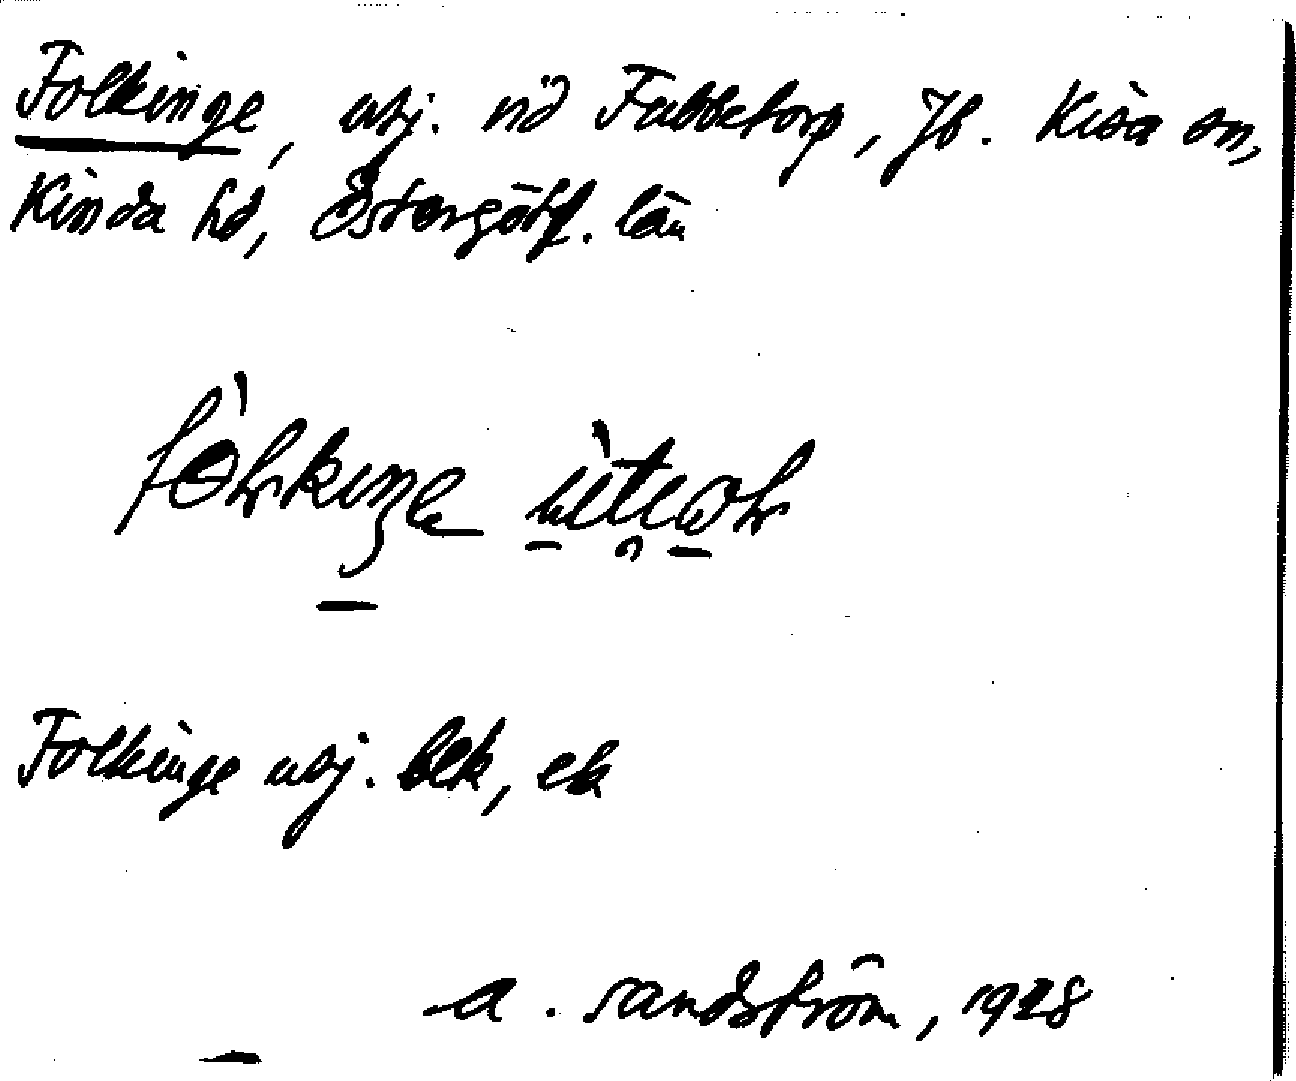 Folkinge, utj. vid Fabbetorp, Jb. Kisa sn,
Kinda hd, Östergötl. län
Folkinge utj. blk, ek
A. Sandström, 1928